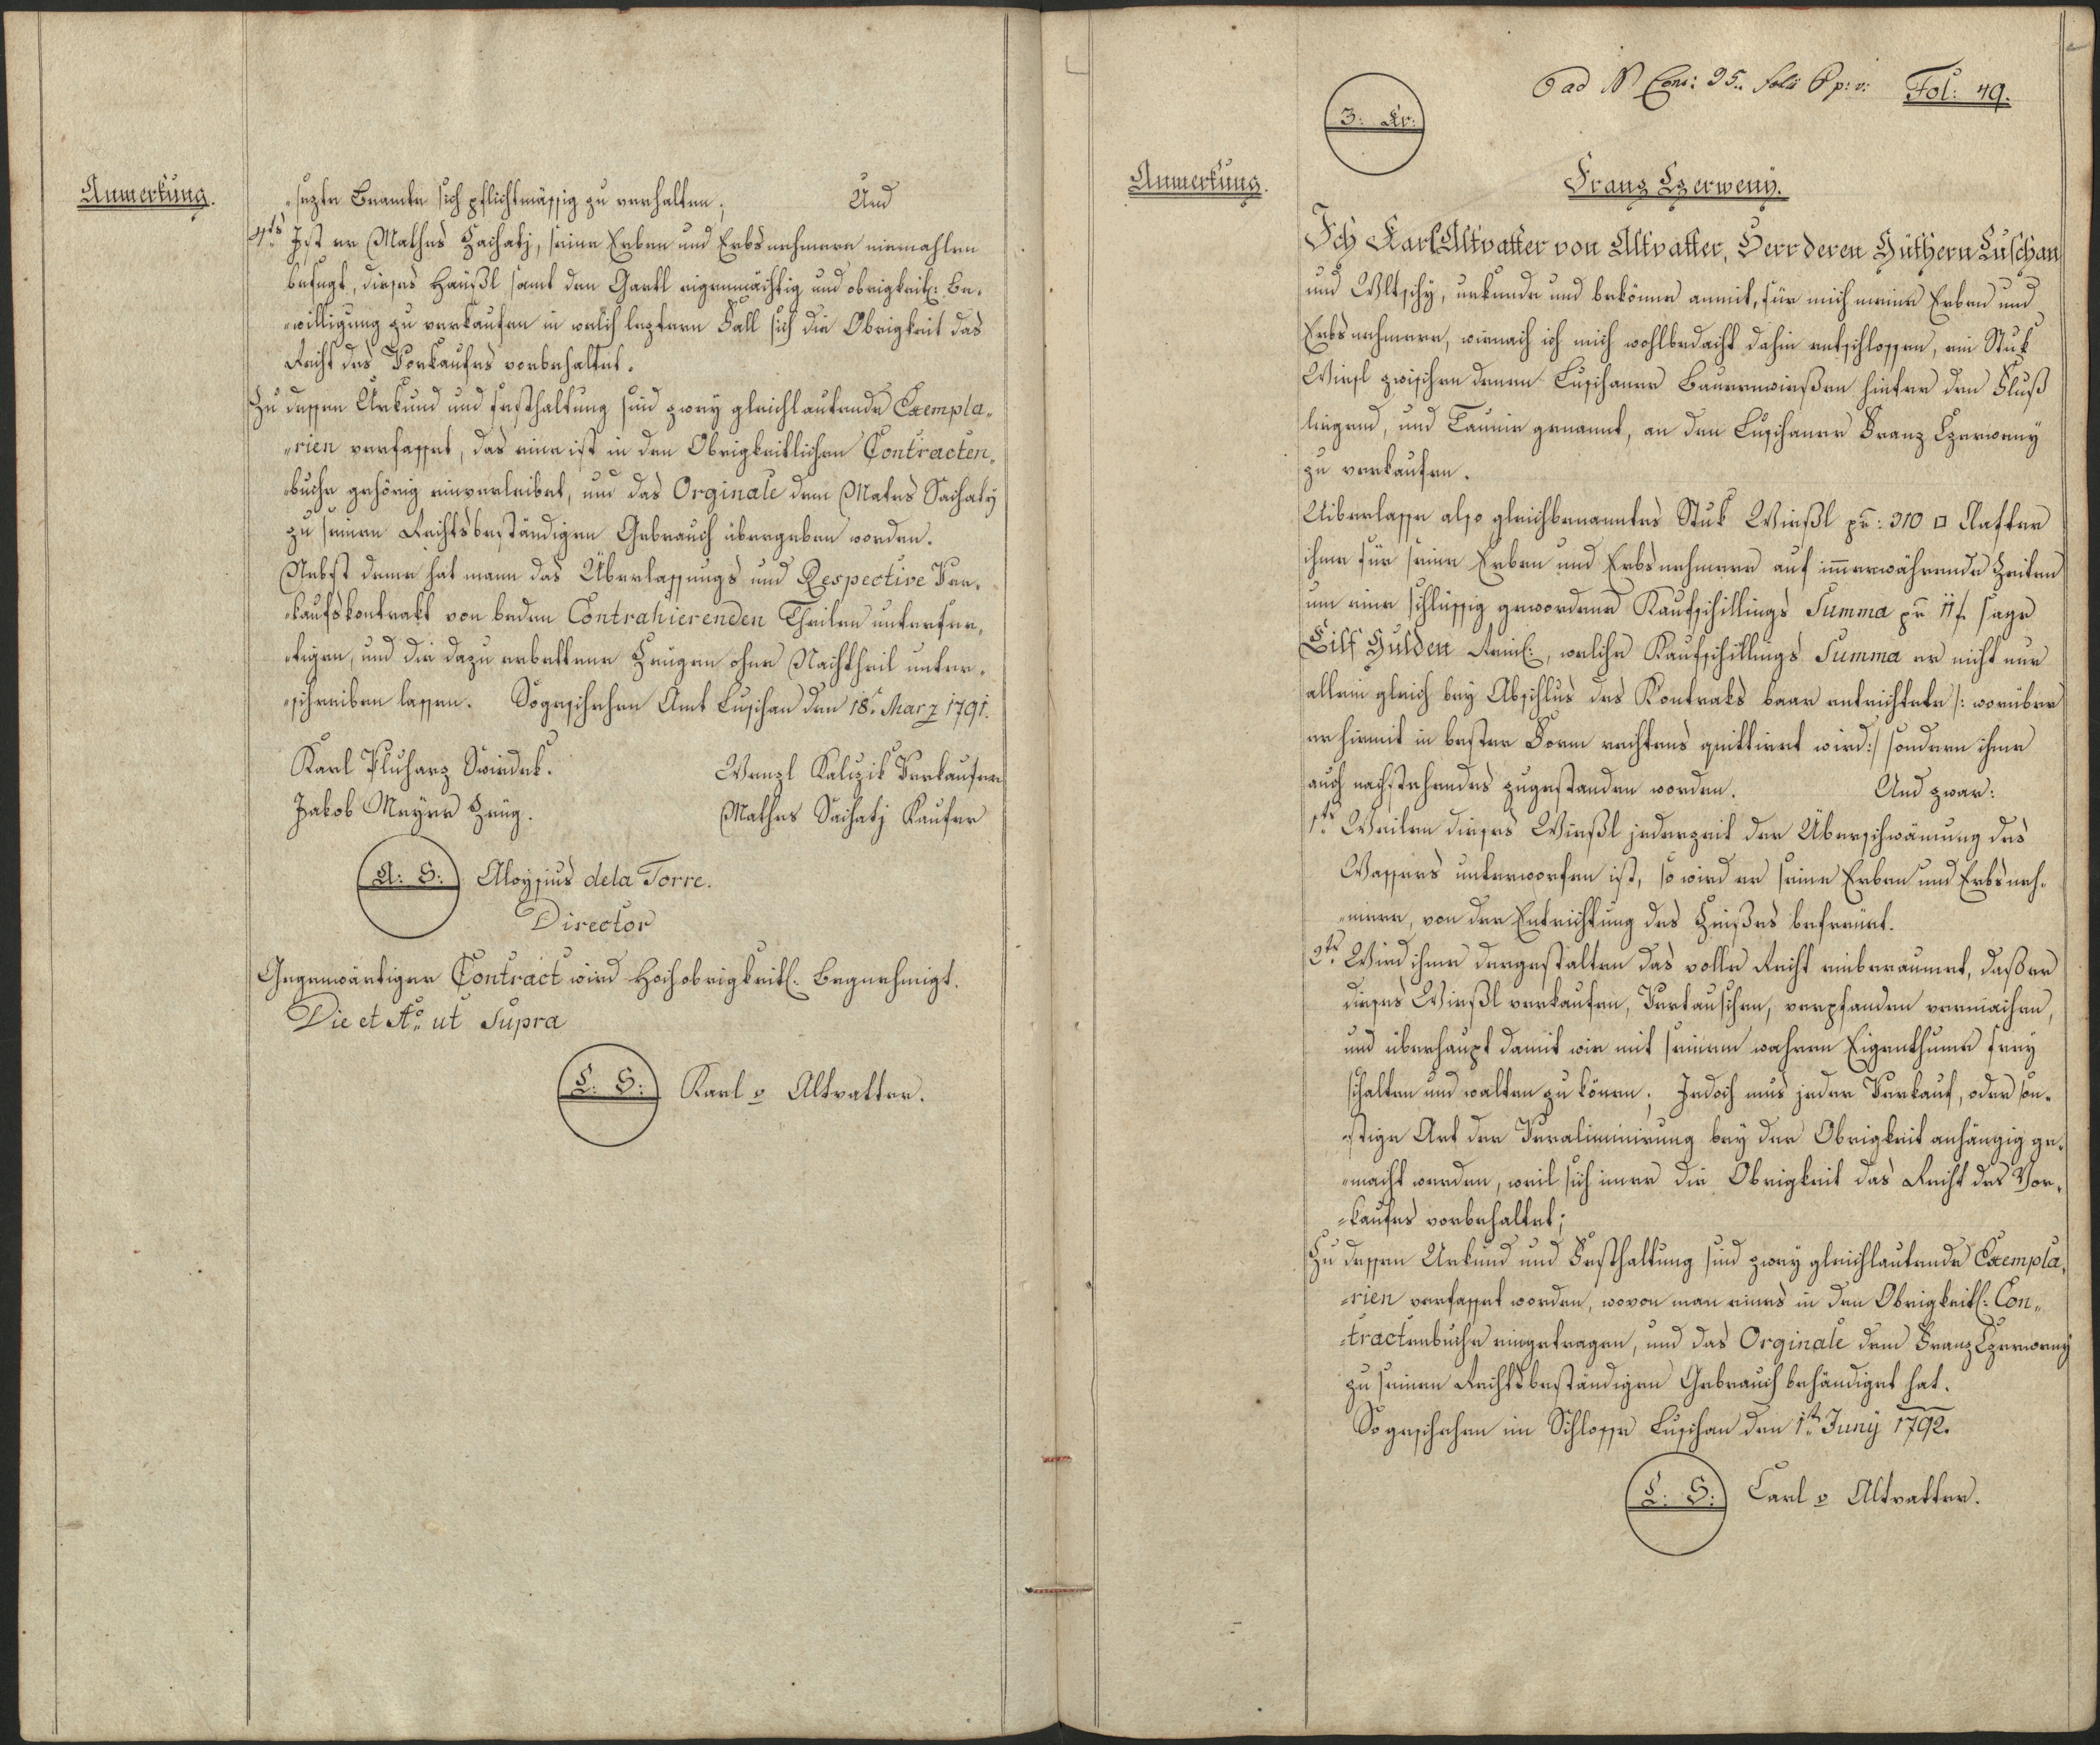 Anmerkung.
sezte Beamte sich pflichtmässig zu verhalten; Und
4ts Ist er Mathes Sachatj, seine Erben und Erbsnehmere niemahlen
befugt, dieses Häußl samt den Gartl eigenmächtig und obrigkeitl: Be-
"willigung zu verkaufen in welch leztern Fall sich die Obrigkeit das
Recht des Vorkaufes vorbehaltet.
Zu dessen Urkund und Festhaltung sind zwey gleichlautende Exempla-
"rien verfasset, das eine ist in den Obrigkeitlichen Contracten-
buche gehörig einverleibet, und das Orginale dem Mates Sachaty
zu seinen Rechtsbeständigen Gebrauch übergeben worden.
Nebst deme hat mann das Überlassungs und Respective Ver-
-kaufskontrakt von beden Contrahierenden Theilen unterfer-
-tigen, und die dazu erbettene Zeugen ohne Nachtheil unter-
-schreiben lassen. So geschehen Amt Luschan den 18t Marz 1791.
Karl Pluharz Swiedek. Wenzl Kalczik Verkaufer
Jakob Meyer Zeug. Mathes Sachatj Kaufer
A: S: Aloysius dela Torre.
Director
Gegenwärtiger Contract wird Hochobrigkeitl: Begnehmigt.
Die et Ao ut Supra
L: S: Karl v Altvatter.
ad N Cons: 25. folii 6 p: v: Fol: 49.
3: Kr:
Anmerkung.
Franz Czerweny.
Ich Karl Altvatter von Altvatter, Herr deren Güthern Luschan
und Wltschy, urkunde und bekönne anmit, für mich meine Erben und
Erbsnehmere, wienach ich mich wohlbedacht dahin entschlossen, ein Stuk
Wiesl zwischen denen Luschaner Bauernwießen hinter den Fluß
liegend, und Taunie genannt, an den Luschaner Franz Czerweny
zu verkaufen.
Uiberlasse also gleichbenanntes Stuk Wießl pr: 310 □ Klafter
ihme für seine Erben und Erbsnehmere auf immerwährende Zeiten
um eine schlüssig gewordene Kaufschillings Summa pr 11 f. sage
Eilf Gulden Reinl:, welche Kaufschillings Summa er nicht nur
allein gleich bey Abschlus des Kontraks baar entrichtete /: worüber
er hiemit in bester Form rechtens quittiret wird:/ sondern ihme
auch nachstehendes zugestanden worden. Und zwar:
1ts Weilen dieses Wießl jederzeit der Überschwämung des
Wassers unterworfen ist, so wird er seine Erben und Erbsneh-
"mere, von der Entrichtung des Zinßes befreüet.
2ts Wird ihme dergestalten das volle Recht einberaumet, daß er
dieses Wießl verkaufen, Vertauschen, verpfanden vermachen,
und überhaupt damit wie mit seinem wahren Eigenthume frey
schalten und walten zu könen; Jedoch mus jeder Verkauf, oder son-
-stige Art der Veraliminirung bey der Obrigkeit anhängig ge-
"macht werden, weil sich imer die Obrigkeit das Recht des Vor-
-kaufes vorbehaltet;
Zu dessen Urkund und Festhaltung sind zwey gleichlautende Exempla-
-rien verfasset worden, wovon man eines in den Obrigkeitl: Con-
-tractenbuche eingetragen, und das Orginale dem Franz Czerweny
zu seinen Rechtsbeständigen Gebrauch behändiget hat.
So geschehen im Schlosse Luschan den 1ts Juny 1792.
L: S: Carl v Altvatter.